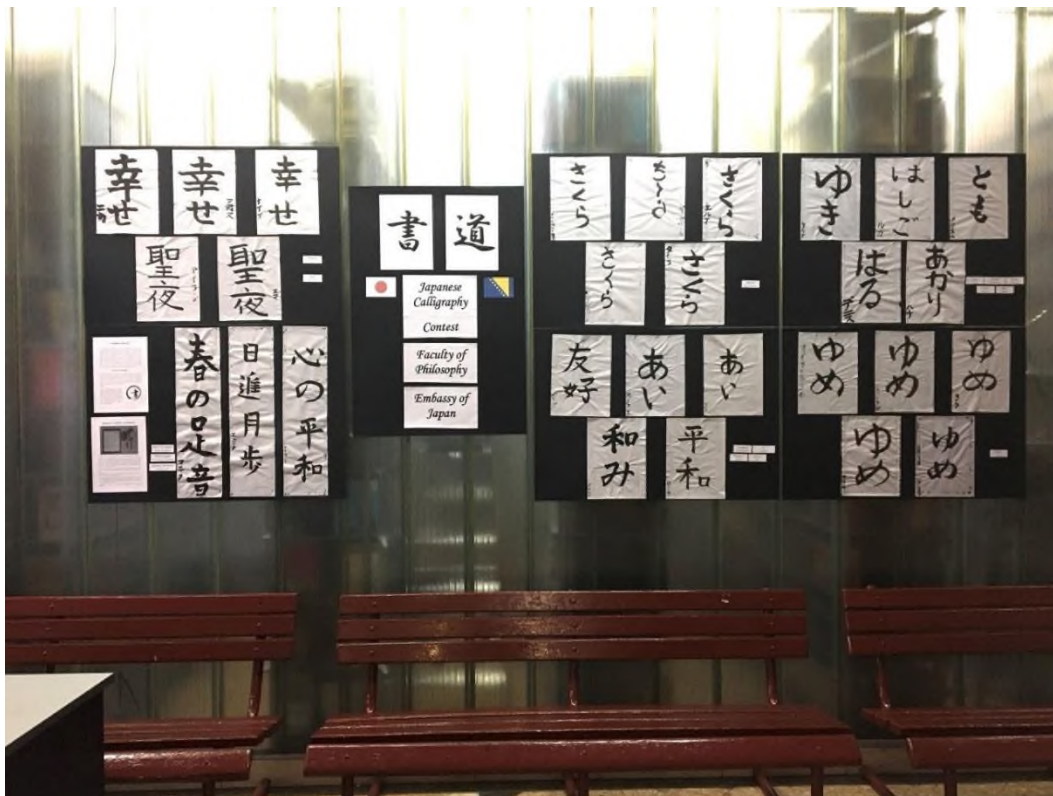 幸せ
幸せ
幸せ
聖夜
聖夜
春の足音
日進月歩
心の平和
書
道
Japanese
Calligraphy
Contest
Faculty of
Philosophy
Embassy of
Japan
さくら
さくら
さくら
さくら
さくら
友好
あい
あい
和み
平和
ゆき
はしご
とも
はる
あかり
ゆめ
ゆめ
ゆめ
ゆめ
ゆめ